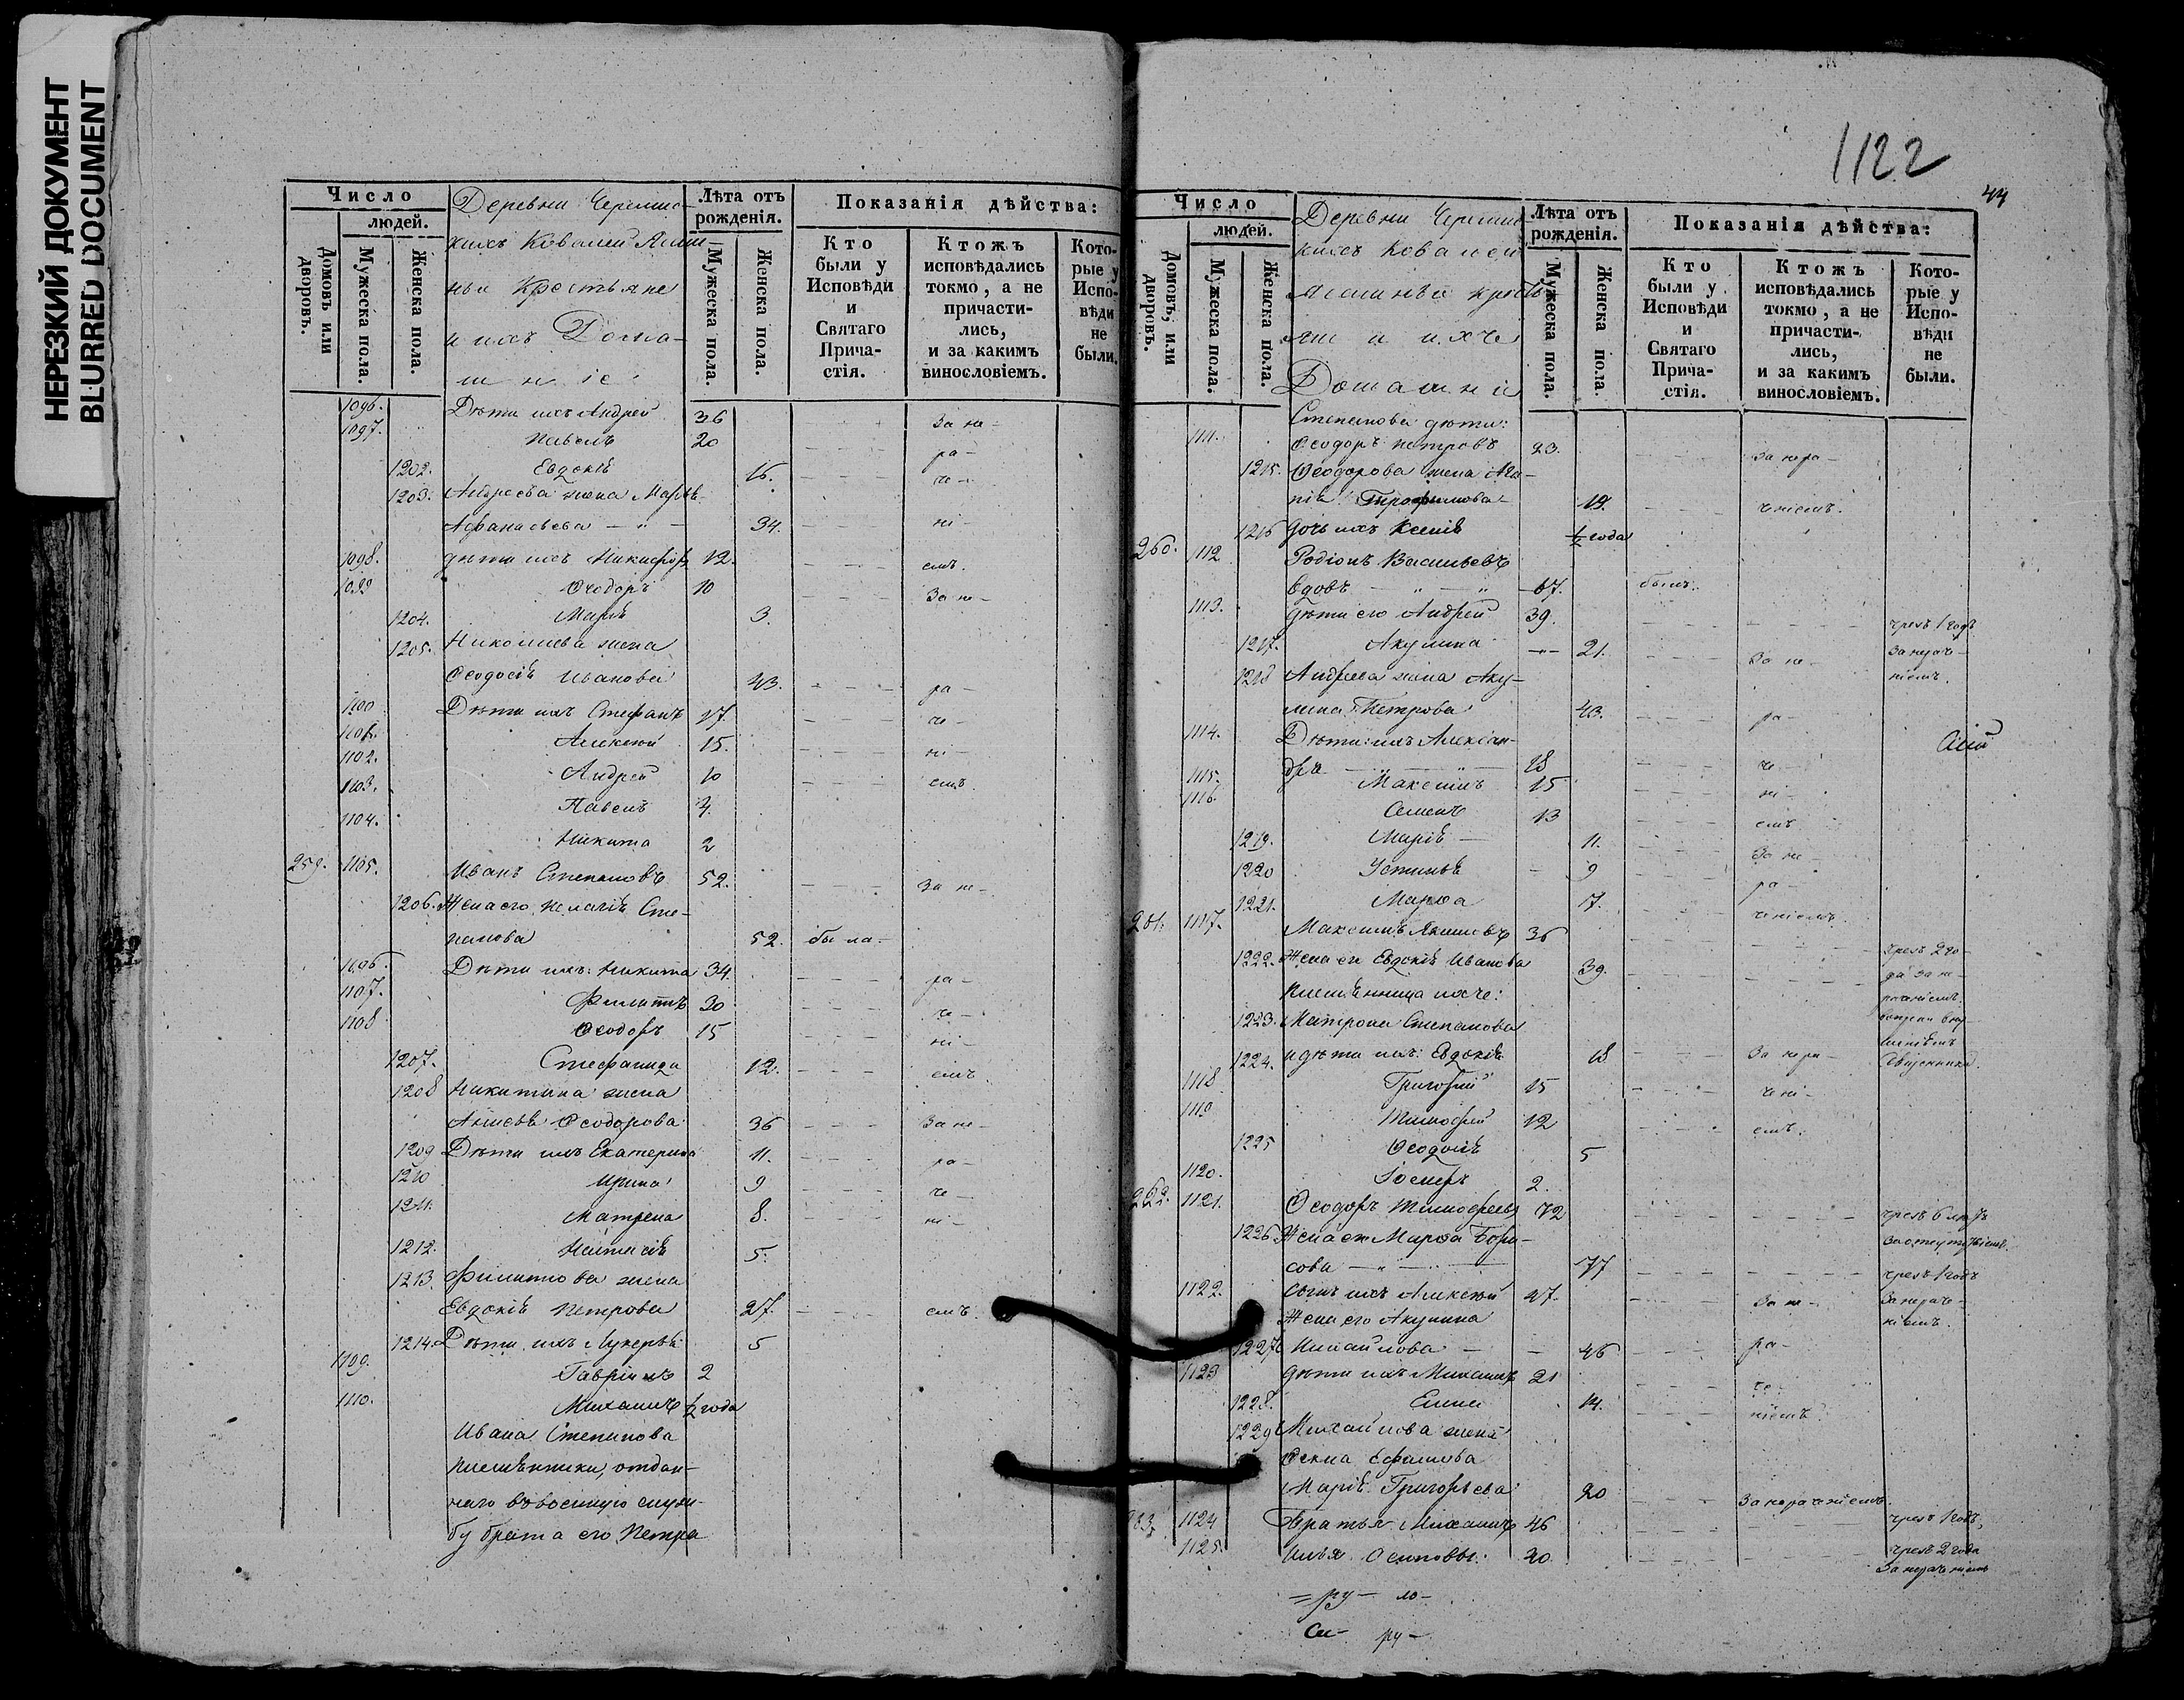 НЕРЕЗКИЙ ДОКУМЕНТ
BLURRED DOCUMENT
Число
людей.
Домовъ или дворовъ.
Мужеска пола.
Женска пола.
Деревни
Ковалей
Крестьяне
и ихъ Дома-
шніе
Лѣта отъ рожденія.
Мужеска пола.
Женска пола.
Показанія дѣйства:
Кто были у Исповѣди и Святаго Прича-стія.
Ктожъ исповѣдались токмо, а не причасти-лись, и за какимъ винословіемъ.
Кото-рые у Испо-вѣди не были.
1096. Дѣти ихъ Андрей 36 За не-
1097. Павелъ 20 ра-
1202. Евдокія 16. че-
1203. Андреева жена Марѳа
Афанасьева 34. ні-
1098. дѣти ихъ Никифоръ 12. емъ.
1099 Ѳеодоръ 10 За не-
1204. Марія 3.
1205. Николаева жена
Ѳеодосія Иванова 43. ра-
1100 Дѣти ихъ Стефанъ 17. че-
1101. Алексѣй 15. ні-
1102. Андрей 10 емъ.
1103. Павелъ 4.
1104. Никита 2
259. 1105. Иванъ Степановъ 52. За не-
1206. Жена его Пелагія Сте-
панова 52. была
1106. Дѣти ихъ: Никита 34. ра-
1107. Филиппъ 30 че-
1108 Ѳеодоръ 15 ні-
1207. Стефанида 12. емъ.
1208 Никитина жена
Анисья Ѳеодорова 36 За не-
1209 Дѣти ихъ Екатерина 11. ра-
1210 Ирина 9 че-
1211. Матрена 8. ні-
1212. Наталія 5.
1213 Филиппова жена
Евдокія Петрова 27. емъ.
1214. Дѣти ихъ Лукерья 5
1109. Гавріилъ 2
1110. Михаилъ ½ года
Ивана Степанова
племянники, отдан-
наго въ военную служ-
бу брата его Петра
1122
44
Число
людей.
Домовъ, или дворовъ.
Мужеска пола.
Женска пола.
Деревни
Ковалей
и ихъ
Домашніе
Лѣта отъ рожденія.
Мужеска пола.
Женска пола.
Показанія дѣйства:
Кто были у Исповѣди и Святаго Прича-стія.
Ктожъ исповѣдались токмо, а не причасти-лись, и за какимъ винословіемъ.
Кото-рые у Испо-вѣди не были.
Степанова дѣти:
1111. Ѳеодоръ Петровъ 23. За нера-
1215. Ѳеодорова жена Ага-
пія Трофимова 19. ченіемъ.
1216 дочь ихъ Ксенія ½ года
260. 1112 Родіонъ Васильевъ
вдовъ 67. былъ.
1113. дѣти его Андрей 39. чрезъ 1 годъ
1217. Акулина 21. За не- За нерач-
1218 Андреева жена Аку- ніемъ.
лина Петрова 43. ра-
1114. Дѣти ихъ Алексан-
дръ 18 че-
1115. Максимъ 15 ні-
1116. Семенъ 13 емъ
1219. Марія 11. За не-
1220 Устинья 9 ра-
1221. Марѳа 7. ченіемъ.
261. 1117. Максимъ Якимовъ 36 чрезъ 2 го-
1222. Жена его Евдокія Иванова 39. да за не-
племянница ихъ: раченіемъ.
1223. Матрона Степанова
1224. и дѣти ихъ: Евдокія 18 За нера-
1118 Григорій 15 чені-
1119 Тимофей 12 емъ.
1225 Ѳеодосія 5
1120. Іосифъ 2.
262. 1121. Ѳеодоръ Тимофеевъ 72 чрезъ 6 лѣтъ
1226. Жена его Марѳа Бори- за отсутствіемъ.
сова 77 чрезъ 1 годъ
1122. Сынъ ихъ Алексѣй 47. За не- За нераче-
Жена его Акулина ніемъ.
1227. Михайлова 46 ра-
1123 дѣти ихъ Михаилъ 21 че-
1228. Елена 14. ніемъ.
1229 Михайлова жена
Марія Григорьева 20 За нераченіемъ.
263. 1124 Братья Михаилъ 46 чрезъ 1 годъ,
1125. Илья Осиповы: 30 чрезъ 2 года
За нераченіемъ
ру- ло-
ру-